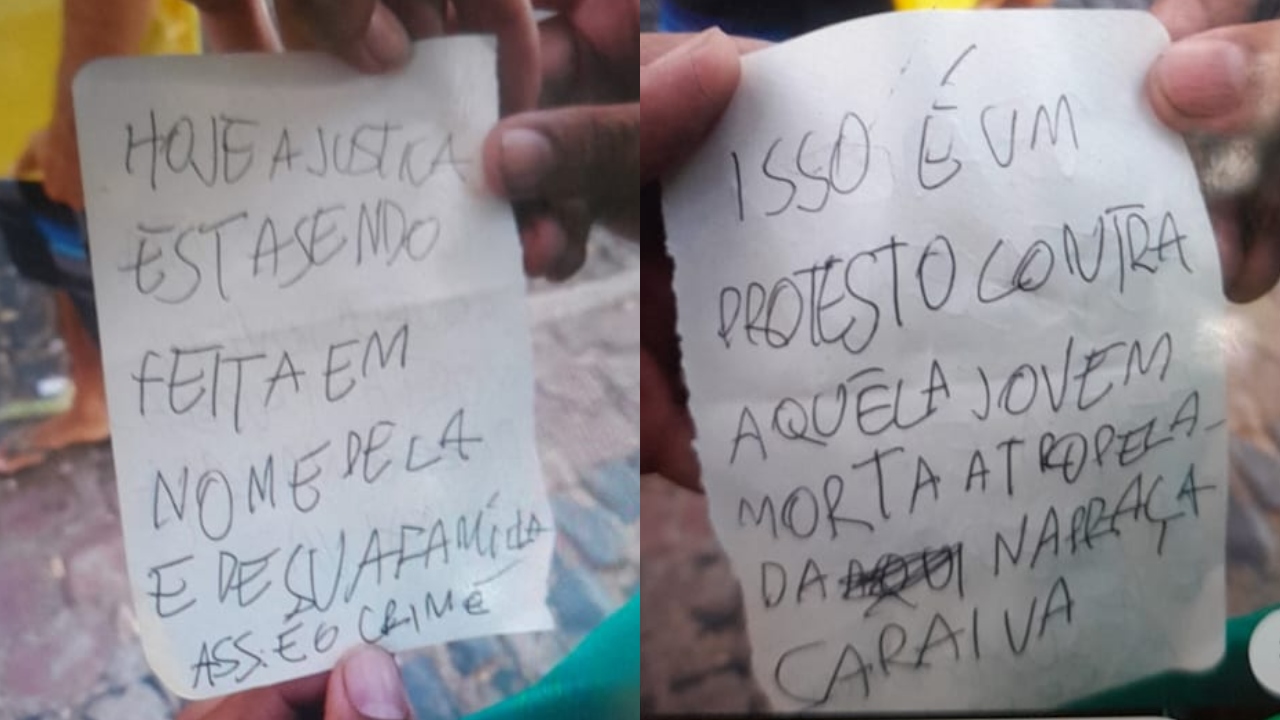 HOJE A JUSTICA
ESTA SENDO
FEITA EM
NOME DELA
E DE SUA FAMÍLIA
ASS: É O CRIME
ISSO É UM
PROTESTO CONTRA
AQUELA JOVEM
MORTA ATROPELA-
DA NA PRAÇA
CARAIVA